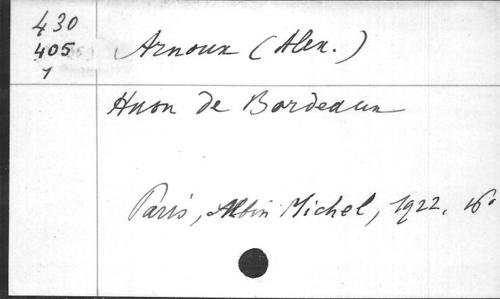 430
405
1
Arnoux (Alex.)
Huon de Bordeaux
Paris, Albin Michel, 1922. 16°